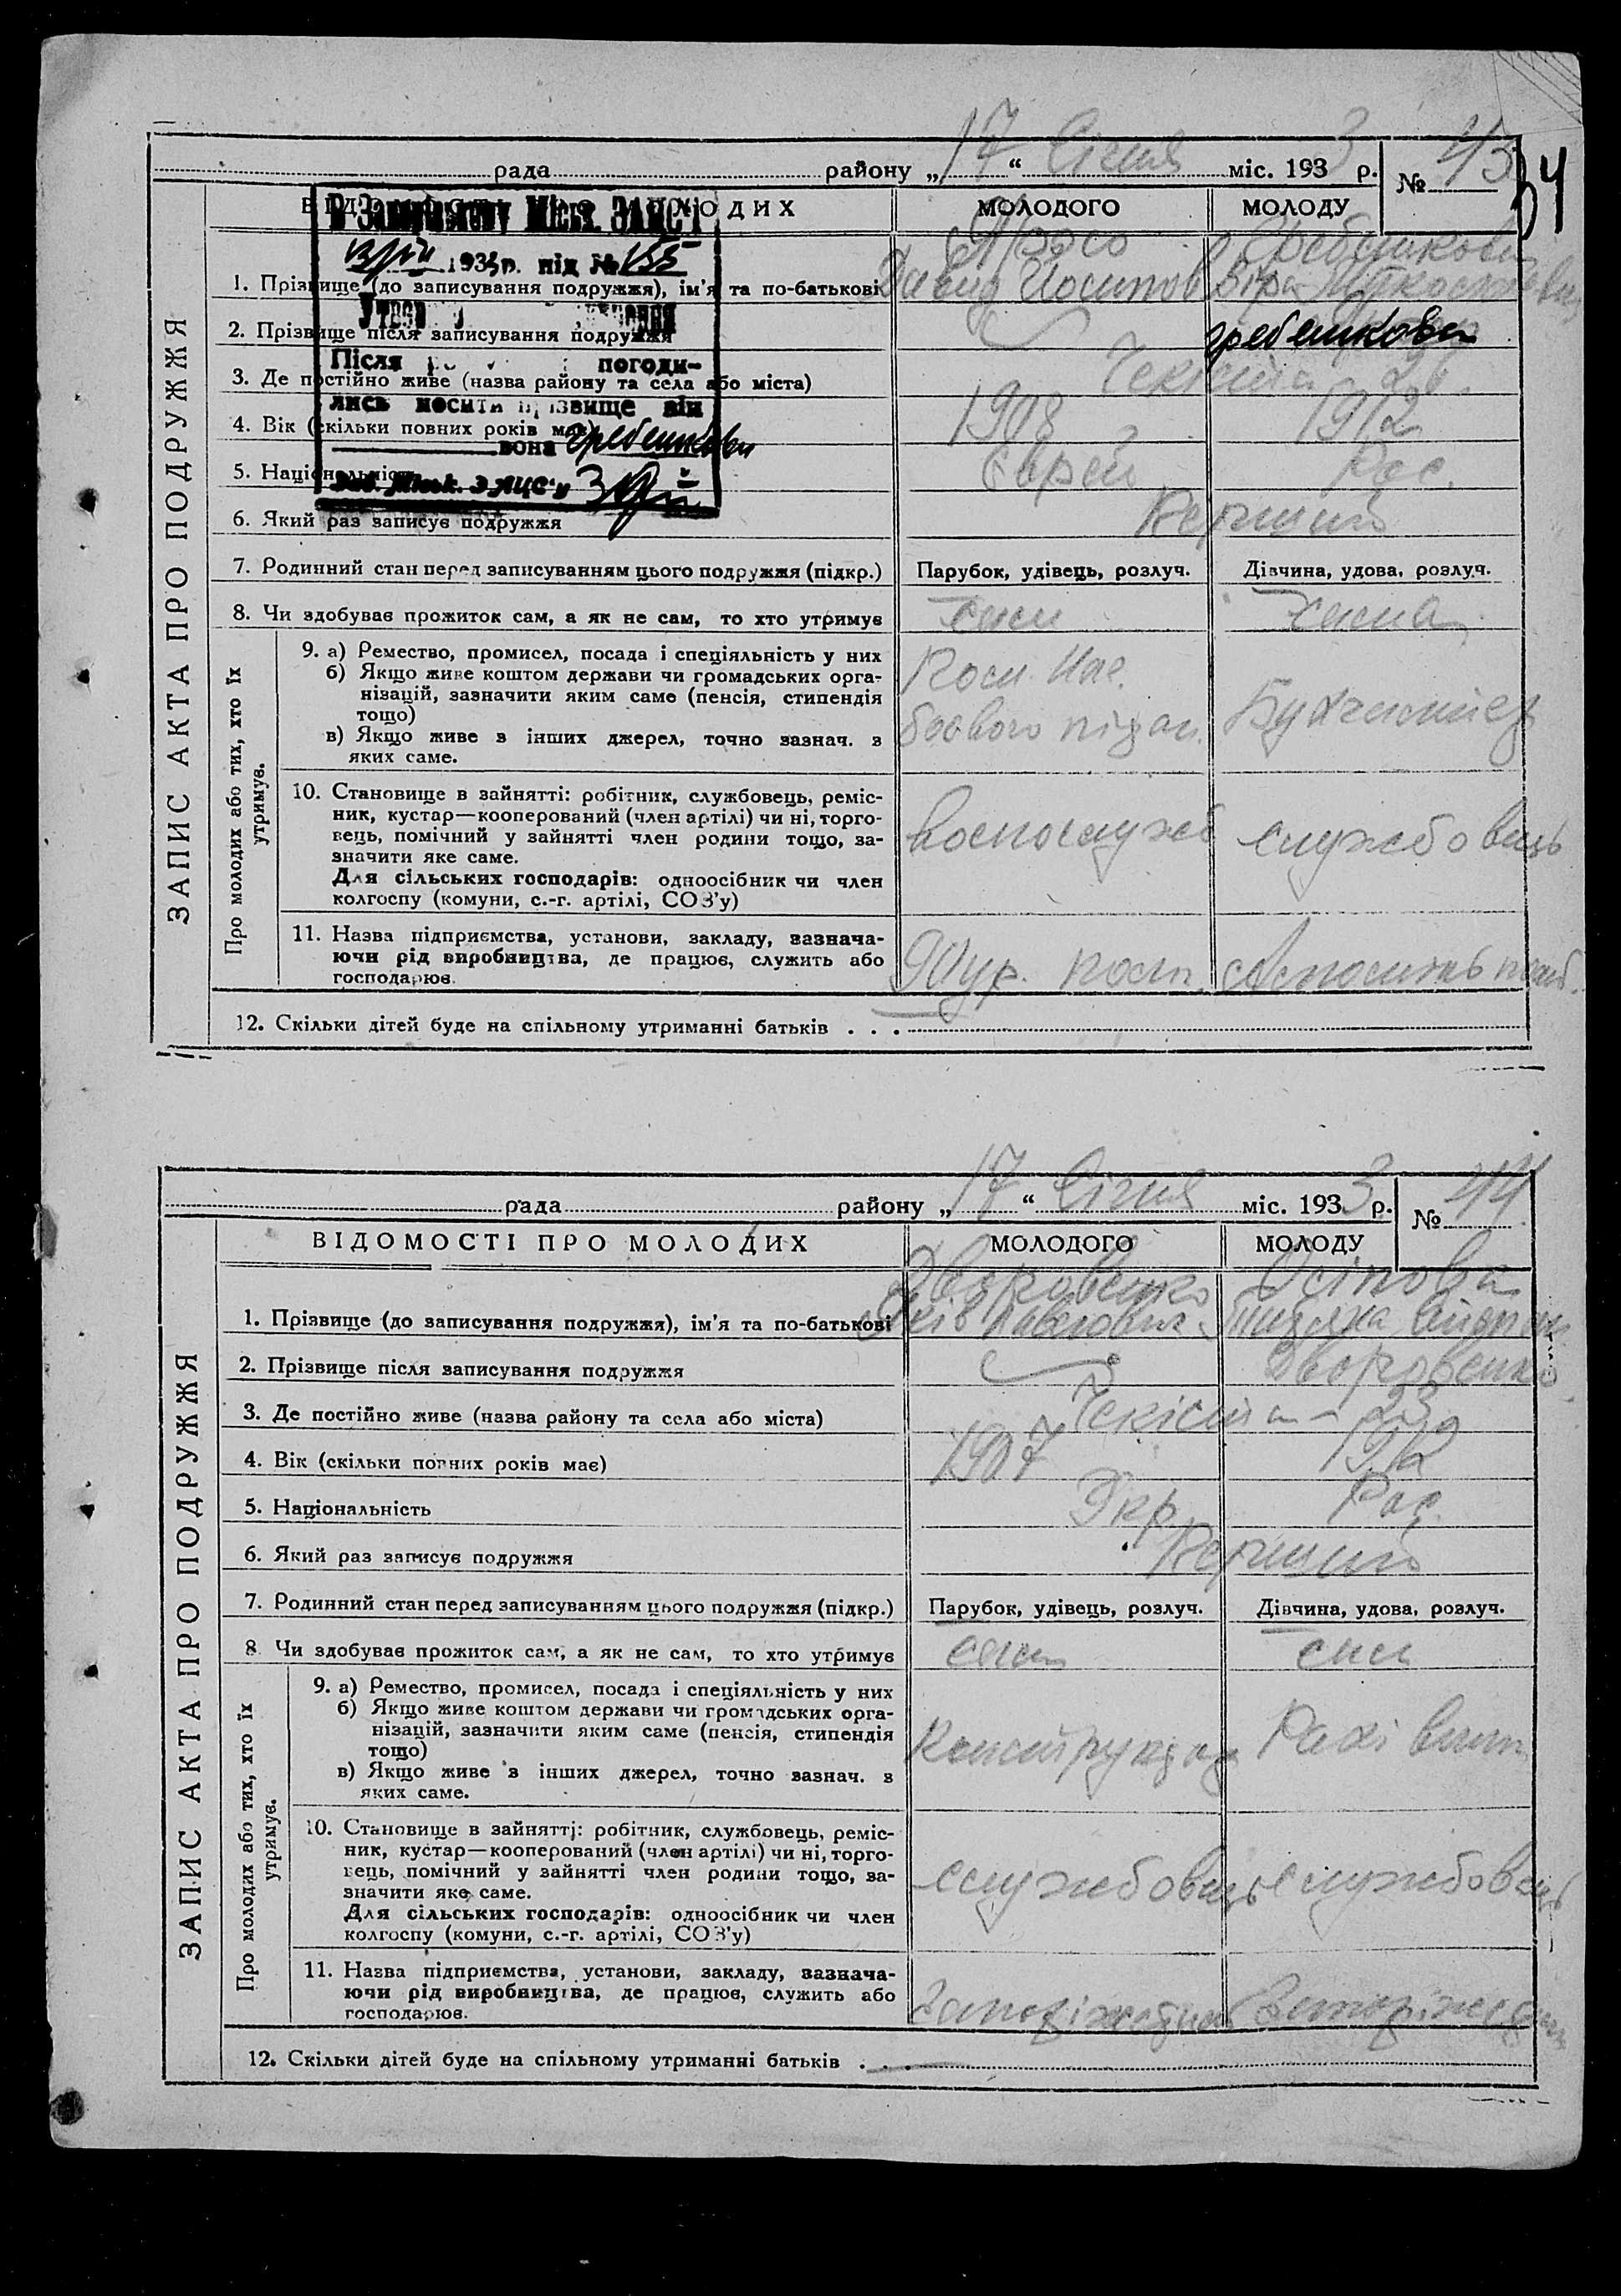 рада району „17“ Січня міс. 1933 р. № 43
34
ВІДОМОСТІ ПРО МОЛОДИХ МОЛОДОГО МОЛОДУ
В Запорізькому Міськ. ЗАГС'і
193 р. під № 155
Після погоди-
лись носити прізвище він
вона Гребешкова
Зав. Міськ. ЗАЦС'у
ЗАПИС АКТА ПРО ПОДРУЖЖЯ
1. Прізвище (до записування подружжя), ім'я та по-батькові Давид Йосипов Гребешкова Віра
2. Прізвище після записування подружжя Гребешкова
3. Де постійно живе (назва району та села або міста) Чекіста 26
4. Вік (скільки повних років має) 1908 1912
5. Національність Єврей Рос.
6. Який раз записує подружжя Перший
7. Родинний стан перед записуванням цього подружжя (підкр.) Парубок, удівець, розлуч. Дівчина, удова, розлуч.
8. Чи здобував прожиток сам, а як не сам, то хто утримує сам сама
Про молодих або тих, хто їх утримує.
9. а) Ремество, промисел, посада і спеціяльність у них
б) Якщо живе коштом держави чи громадських орга-
нізацій, зазначити яким саме (пенсія, стипендія
тощо)
в) Якщо живе з інших джерел, точно зазнач. з
яких саме.
Пом. Нач.
бойового пітан.
10. Становище в зайнятті: робітник, службовець, реміс-
ник, кустар—кооперований (член артілі) чи ні, торго-
вець, помічний у зайнятті член родини тощо, за-
значити яке саме.
Для сільських господарів: одноосібник чи член
колгоспу (комуни, с.-г. артілі, СОЗ'у)
службовець
11. Назва підприємства, установи, закладу, зазнача-
ючи рід виробництва, де працює, служить або
господарює.
90
12. Скільки дітей буде на спільному утриманні батьків . . .
рада району „17“ Січня міс. 1933 р. № 44
ВІДОМОСТІ ПРО МОЛОДИХ МОЛОДОГО МОЛОДУ
ЗАПИС АКТА ПРО ПОДРУЖЖЯ
Осіпова
1. Прізвище (до записування подружжя), ім'я та по-батькові Яків Павлович
2. Прізвище після записування подружжя
3. Де постійно живе (назва району та села або міста) Чекіста – 23
4. Вік (скільки повних років має) 1907 1912
5. Національність Укр. Рос.
6. Який раз записує подружжя Перший
7. Родинний стан перед записуванням цього подружжя (підкр.) Парубок, удівець, розлуч. Дівчина, удова, розлуч.
8 Чи здобував прожиток сам, а як не сам, то хто утримує сам сам
Про молодих або тих, хто їх утримує.
9. а) Ремество, промисел, посада і спеціяльність у них
б) Якщо живе коштом держави чи громадських орга-
нізацій, зазначити яким саме (пенсія, стипендія
тощо)
в) Якщо живе з інших джерел, точно зазнач. з
яких саме.
10. Становище в зайнятті: робітник, службовець, реміс-
ник, кустар—кооперований (член артілі) чи ні, торго-
вець, помічний у зайнятті член родини тощо, за-
значити яке саме.
Для сільських господарів: одноосібник чи член
колгоспу (комуни, с.-г. артілі, СОЗ'у)
службовець службовець
11. Назва підприємства, установи, закладу, зазнача-
ючи рід виробництва, де працює, служить або
господарює.
12. Скільки дітей буде на спільному утриманні батьків . . .